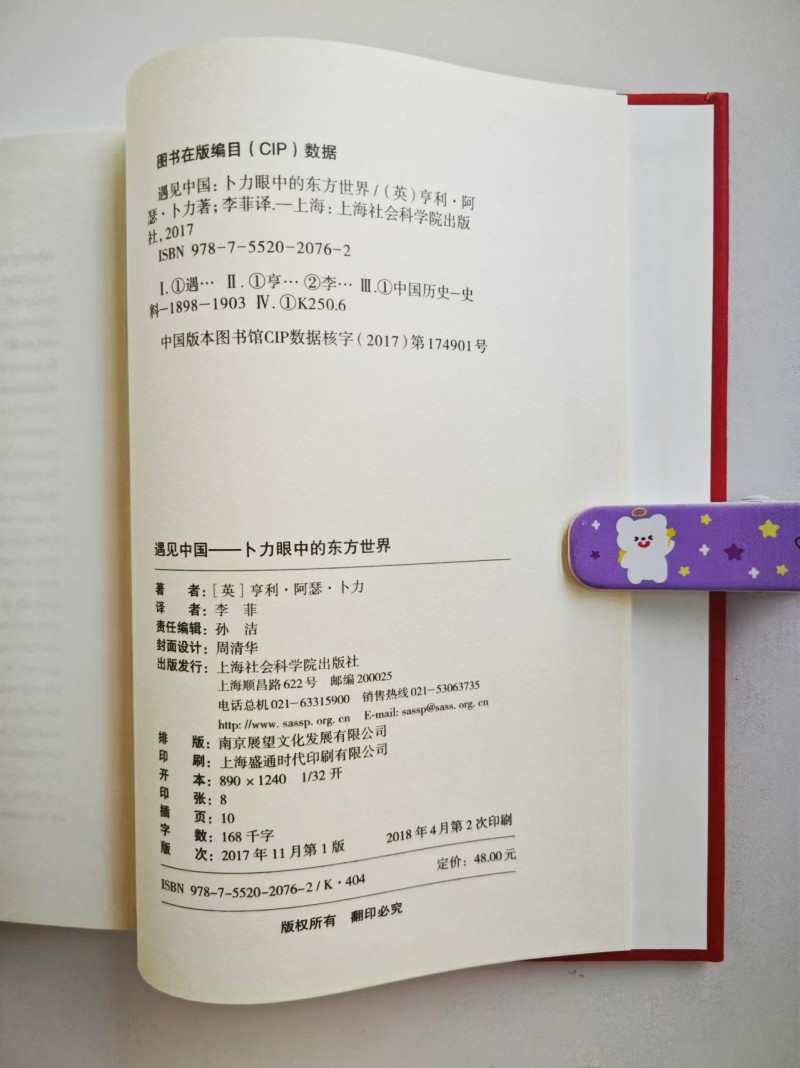 图书在版编目（CIP）数据
遇见中国：卜力眼中的东方世界/（英）亨利·阿
瑟·卜力著；李菲译.—上海：上海社会科学院出版
社，2017
ISBN 978-7-5520-2076-2
Ⅰ.①遇… Ⅱ.①亨… ②李… Ⅲ.①中国历史-史
料-1898-1903 Ⅳ.①K250.6
中国版本图书馆CIP数据核字（2017）第174901号
遇见中国——卜力眼中的东方世界
著 者：［英］亨利·阿瑟·卜力
译 者：李 菲
责任编辑：孙 洁
封面设计：周清华
出版发行：上海社会科学院出版社
上海顺昌路622号 邮编200025
电话总机021-63315900 销售热线021-53063735
http://www.sassp.org.cn E-mail:sassp@sass.org.cn
排 版：南京展望文化发展有限公司
印 刷：上海盛通时代印刷有限公司
开 本：890×1240 1/32开
印 张：8
插 页：10
字 数：168千字
版 次：2017年11月第1版 2018年4月第2次印刷
ISBN 978-7-5520-2076-2/K·404 定价：48.00元
版权所有 翻印必究